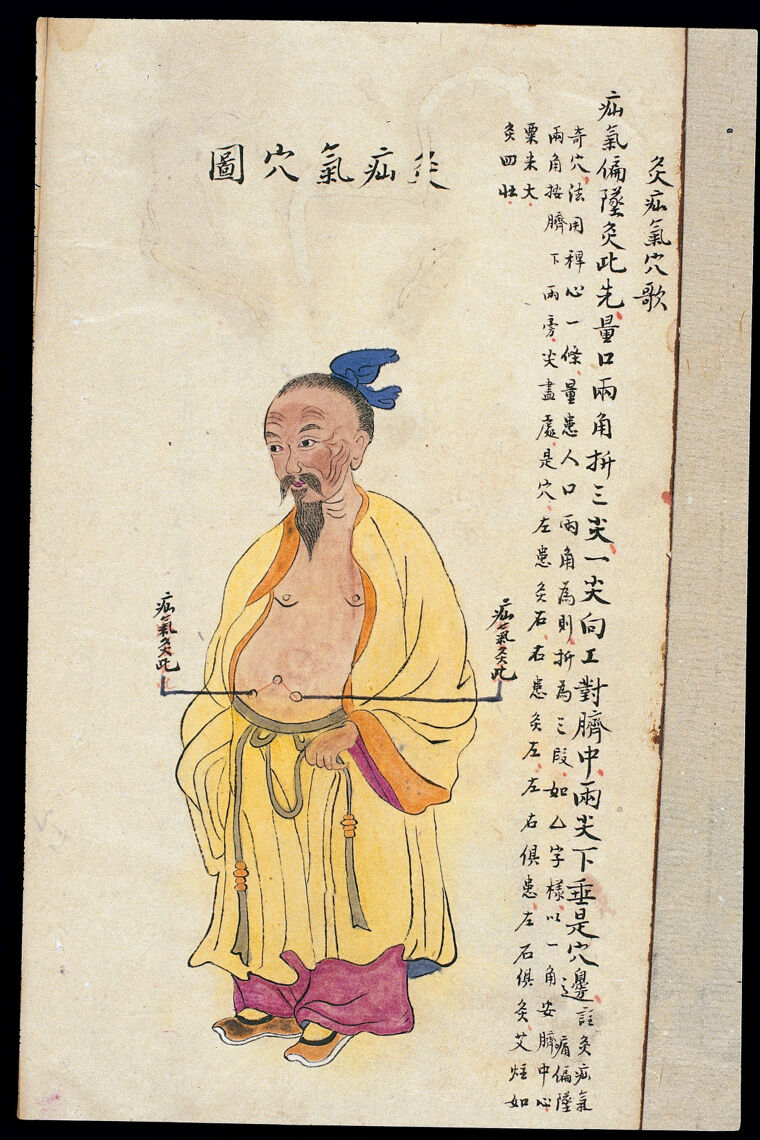 灸疝氣穴歌
疝氣偏墜灸此先量口兩角折三尖一尖向工對臍中兩尖下垂是穴邊
註灸疝氣
痛偏墜
奇穴法用稈心一條量患人口兩角為則折為三段如厶字樣以一角安臍中心
兩角按臍下兩旁尖盡處是穴左患灸右右患灸左左右俱患左右俱灸艾炷如
粟米大
灸四壯
灸疝氣穴圖
疝氣灸此
疝氣灸此